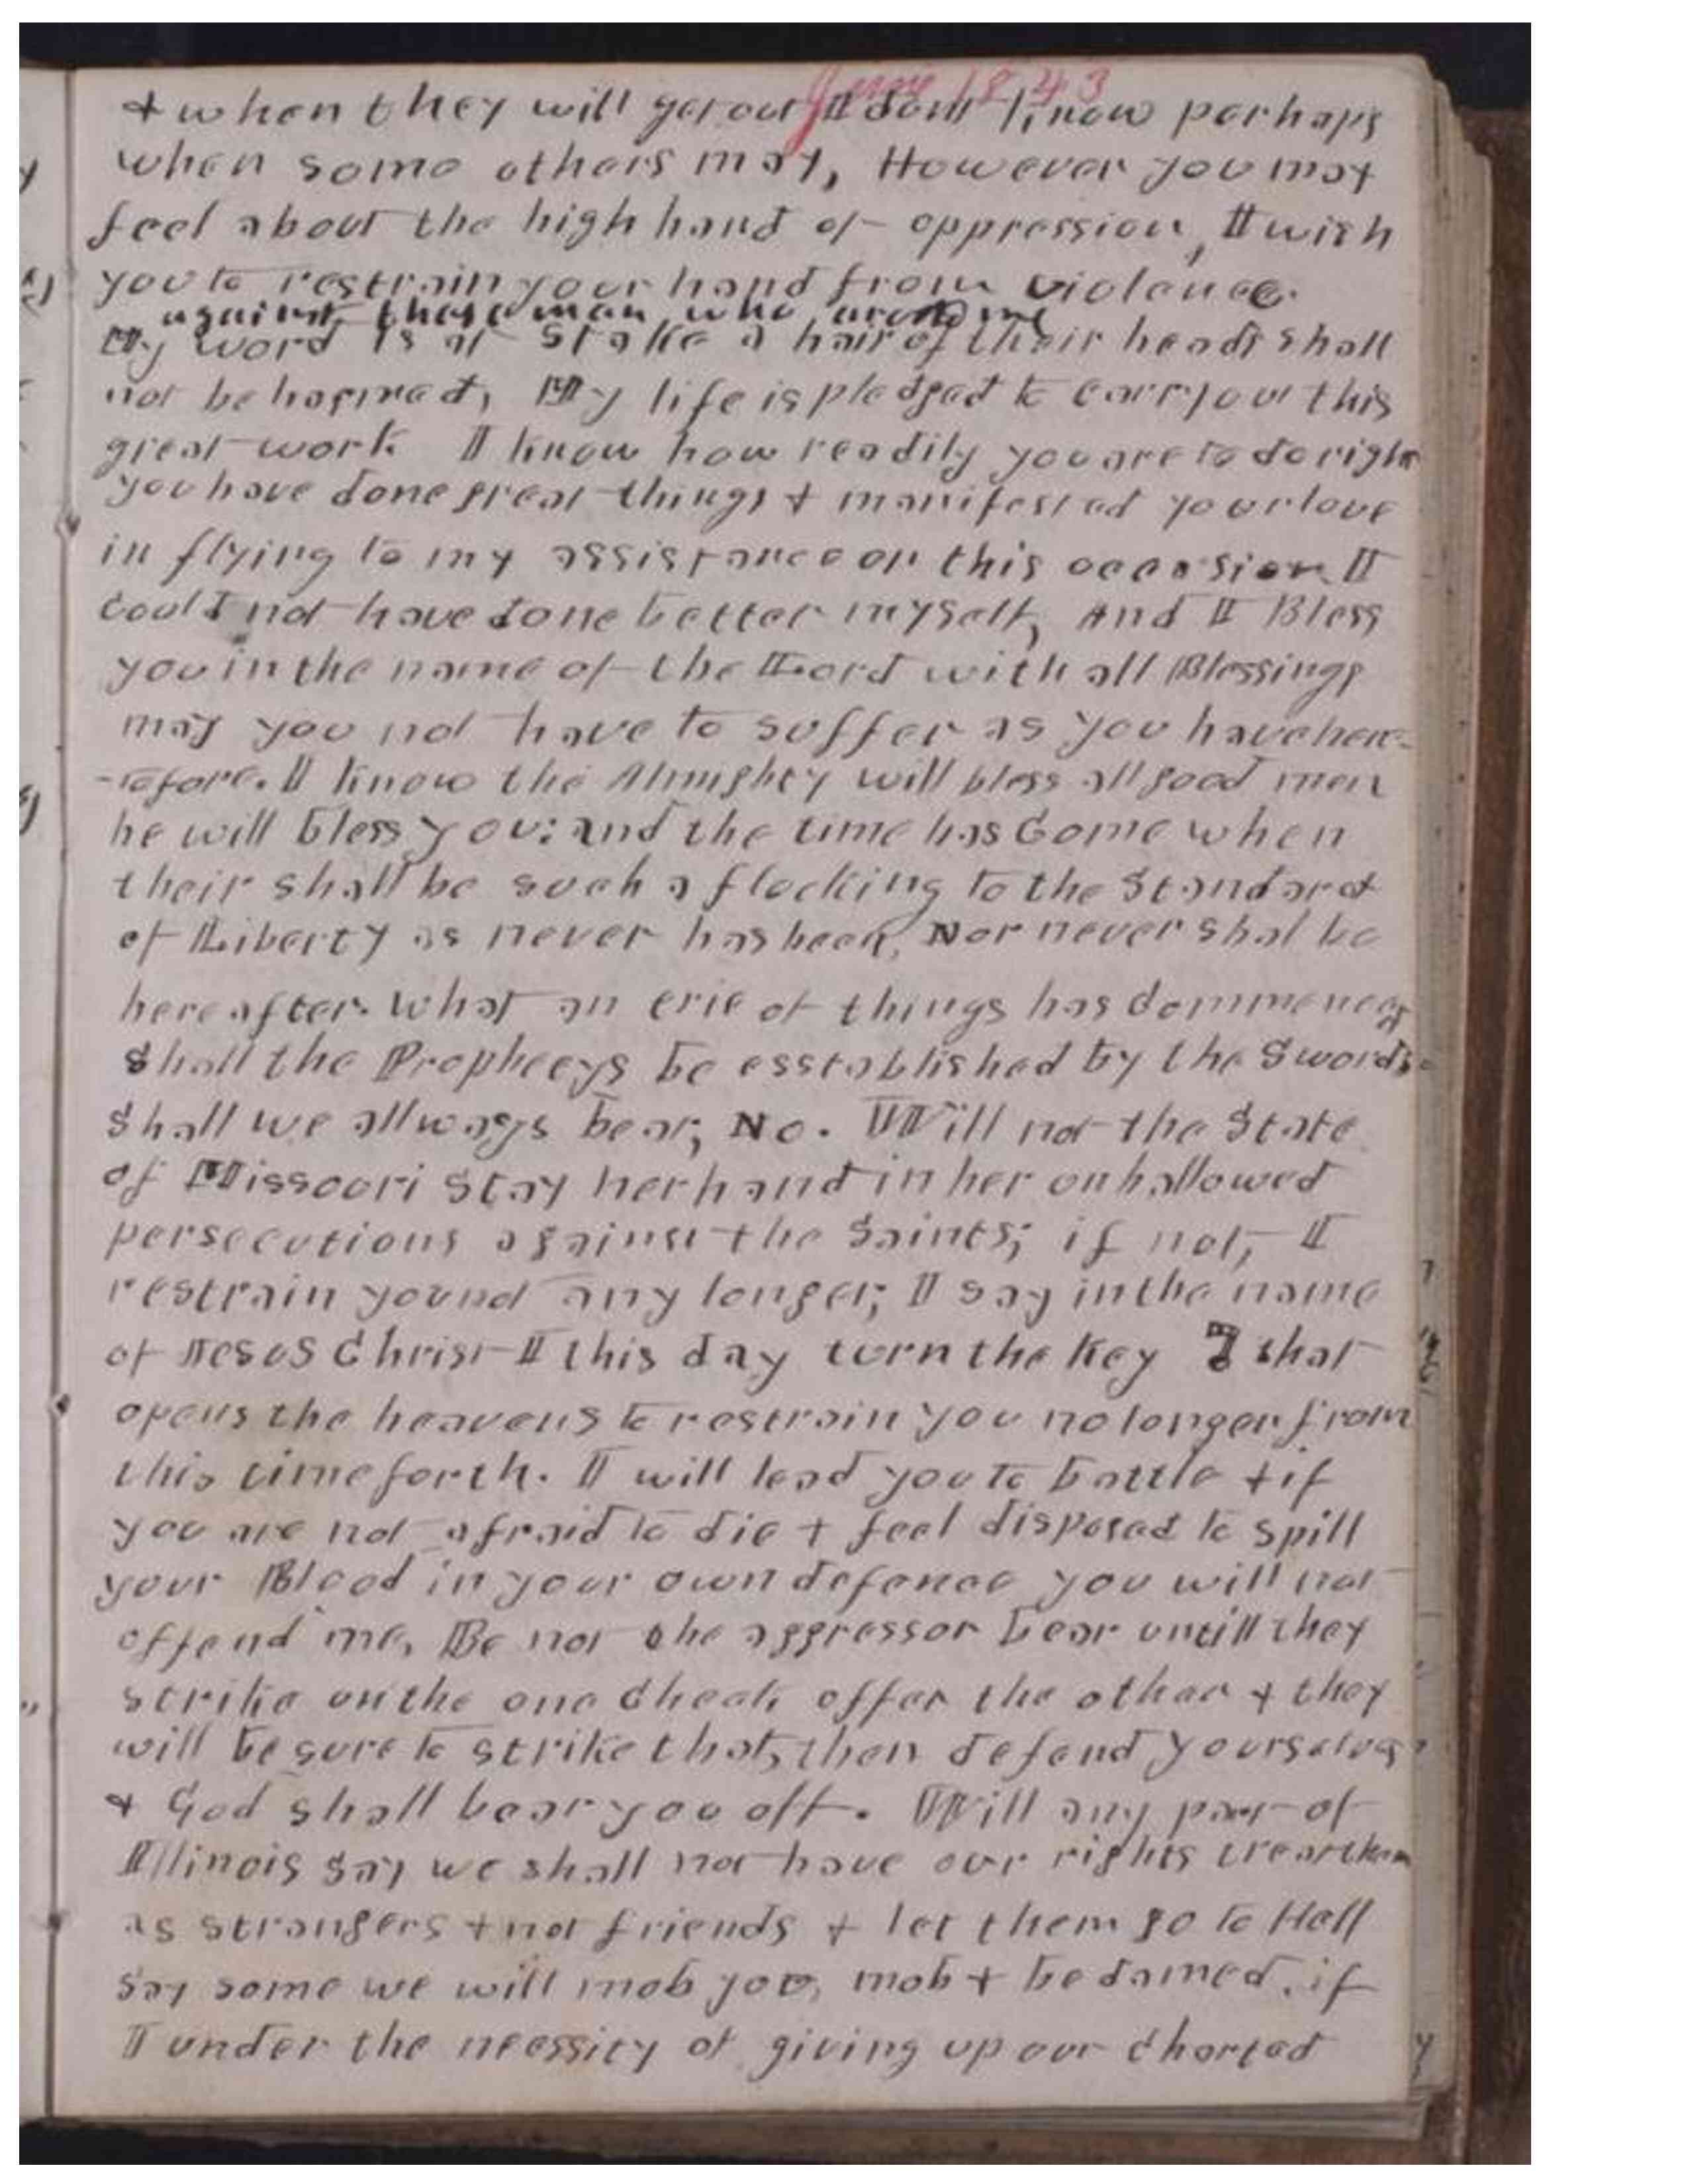 June 1843
& when they will get out I dont know perhaps
when some others may, However you may
feel about the high hand of oppression, I wish
you to restrain your hand from violence
against these men who arested me
My word is at stake a hair of their heads shall
not be harmed, My life is pledged to carry out this
great work I know how readily you are to do right
you have done great things & manifested your love
in flying to my assistance on this occasion I
could not have done better myself, And I Bless
you in the name of the Lord with all Blessings
may you not have to suffer as you have here-
-tofore. I know the Almighty will bless all good men
he will bless you: and the time has Come when
their shall be such a flocking to the Standard
of Liberty as never has been, Nor never shal be
hereafter. What an erie of things has Commenced
Shall the Prophecys be esstablished by the Sword?
Shall we allways bear; No. Will not the State
of Missouri Stay her hand in her unhallowed
persecutions against the Saints; if not, I
restrain you not any longer; I say in the name
of Jesus Christ I this day turn the Key that
opens the heavens to restrain you no longer from
this time forth. I will lead you to battle & if
you are not afraid to die & feel disposed to spill
your Blood in your own defence you will not
offend me, Be not the aggressor bear untill they
strike on the one Cheek offer the other & they
will be sure to strike that, then defend yourselves
& God shall bear you off. Will any part of
Illinois say we shall not have our rights treat them
as strangers & not friends & let them go to Hell
Say some we will mob you, mob & be damed, if
I under the necessity of giving up our Charted